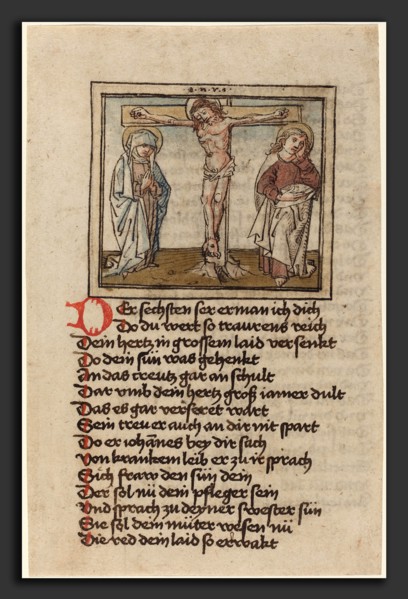 ·i·n·r·i·
Der sechsten ser erman ich dich
Do du wert so traurens reich
Dein hertz in grossem laid versenkt
Do dein sun was gehenkt
An das creutz gar an schult
Dar vmb dein hertz groß iamer dult
Das es gar verseret wart
Sein treu er auch an dir nit spart
Do er iohānes bey dir sach
Von krankem leib er zu ir sprach
Sich fraw den sün dein
Der sol nü dein pfleger sein
Vnd sprach zu deyner swester sün
Sie sol dein müter wesen nü
Die red dein laid so erwakt